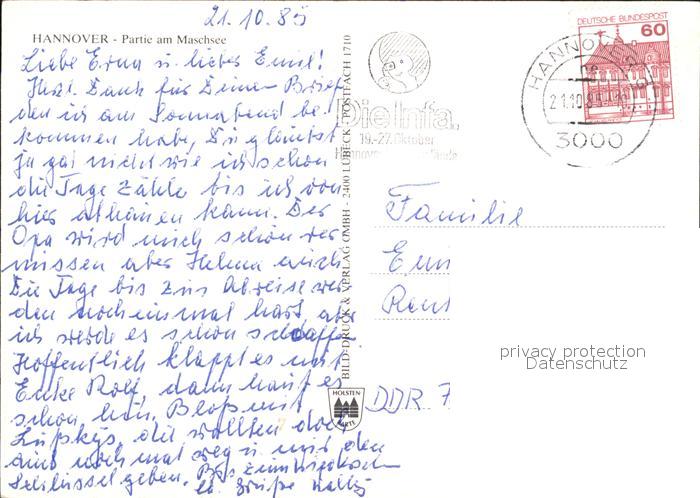 21.10.85
HANNOVER - Partie am Maschsee
Liebe Erna u. lieber Emil!
Herzl. Dank für Deinen Brief
den ich am Sonnabend be-
kommen habe, Du glaubst
ja gar nicht wie ich schon
die Tage zähle bis ich von
hier abhauen kann. Der
Opa wird mich schon ver
missen aber Helma auch
Die Tage bis zur Abreise wer
den noch einmal hart, aber
ich werde es schon schaffen
Hoffentlich klappt es mit
Eurke Rolf, dann haut es
schon hin. Bloß mit
die wollten doch
auch noch mal weg u. mir den
Schlüssel geben. Bis zum Wiedersehen
lb. Grüße
BILD-DRUCK & VERLAG GMBH - 2400 LÜBECK - POSTFACH 1710
HOLSTEN
KARTE
Die Infa.
19.-27. Oktober
DEUTSCHE BUNDESPOST
60
HANNOVER
21.10.85
3000
Familie
Emi
Rens
DDR 7
privacy protection
Datenschutz